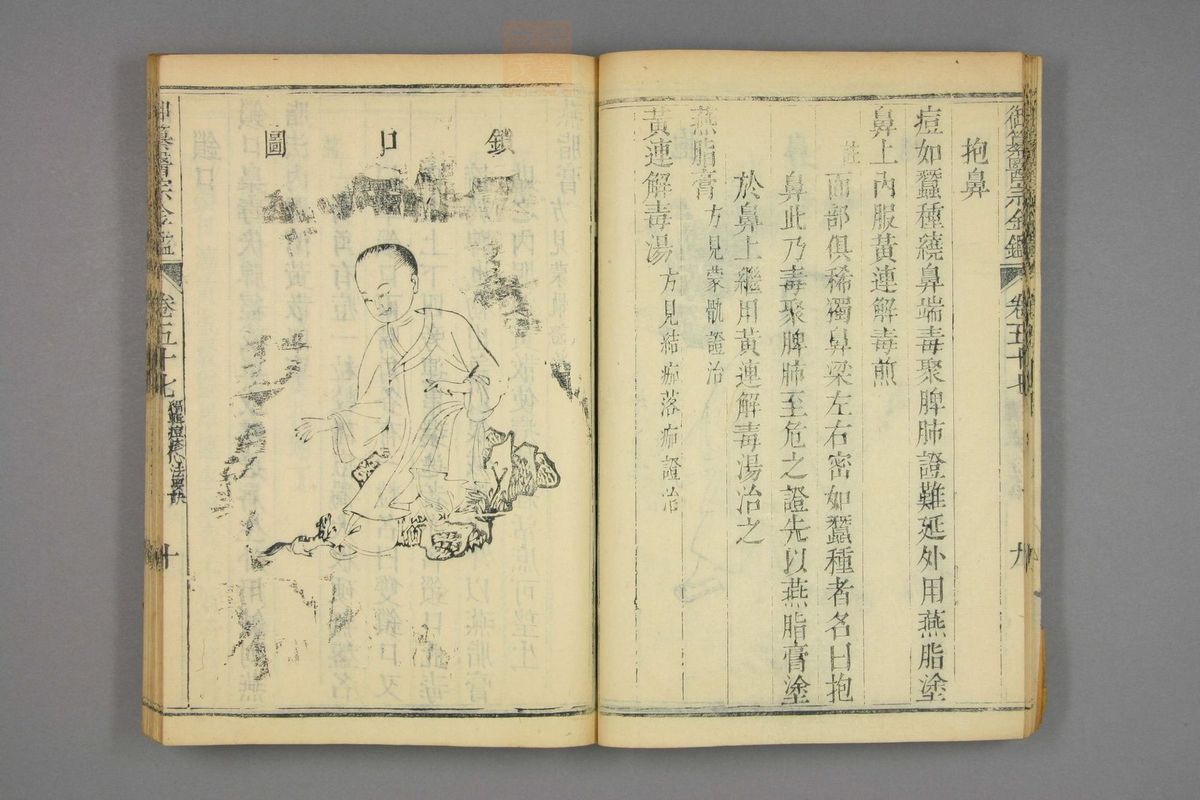 御纂醫宗金鑑 卷五十七 九
抱鼻
痘如蠶種繞鼻端毒聚脾肺證難延外用燕脂塗
鼻上內服黃連解毒煎
註
面部俱稀獨鼻梁左右密如蠶種者名曰抱
鼻此乃毒聚脾肺至危之證先以燕脂膏塗
於鼻上繼用黃連解毒湯治之
燕脂膏 方見蒙骩證治
黃連解毒湯 方見結痂落痂證治
鎖口圖
御纂醫宗金鑑 卷五十七 編輯痘疹心法要訣 十